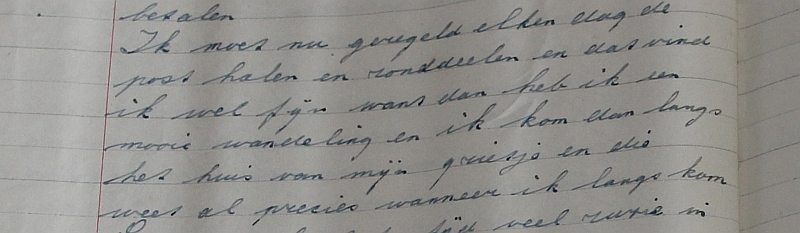 betalen
Ik moet nu geregeld elken dag de
post halen en ronddeelen en dat vind
ik wel fijn want dan heb ik een
mooie wandeling en ik kom dan langs
het huis van mijn grietje en die
weet al precies wanneer ik langs kom
tijd veel ruzie in